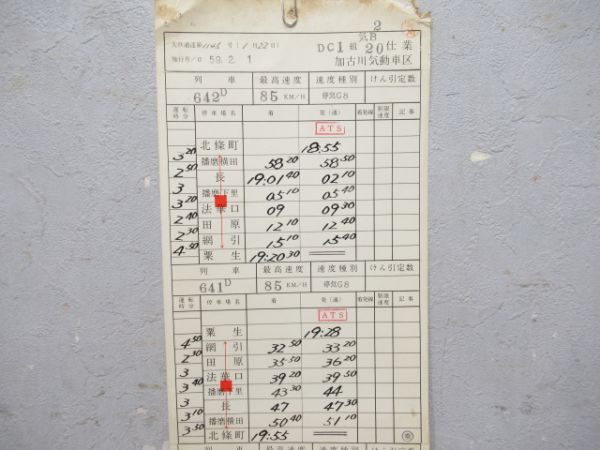 2
大鉄運達第1145号(1月22日)
気B
DC1組 20仕業
施行月/日 59.2.1
加古川気動車区
列車 最高速度 速度種別 けん引定数
642D 85KM/H 停気G8
運転時分 停車場名 着 発(通) 着発線 制限速度 記事
ATS
北條町 18:55
3 20
播磨横田 58 20 58 50
2 50
長 19:01 40 02 10
3
播磨下里 05 10 05 40
3 20
法華口 09 09 30
2 40
田原 12 10 12 40
2 30
網引 15 10 15 40
4 50
粟生 19:20 30
列車 最高速度 速度種別 けん引定数
641D 85KM/H 停気G8
運転時分 停車場名 着 発(通) 着発線 制限速度 記事
ATS
粟生 19:28
4 50
網引 32 50 33 20
2 30
田原 35 50 36 20
3
法華口 39 20 39 50
3 40
播磨下里 43 30 44
3
長 47 47 30
3 10
播磨横田 50 40 51 10
3 50
北條町 19:55